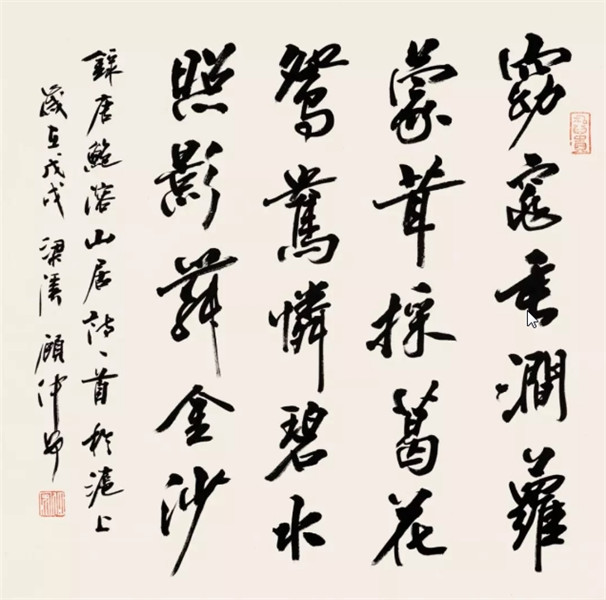 窈窕垂澗蘿
蒙茸採葛花
鴛鴦憐碧水
照影舞金沙
錄唐鮑溶山居詩一首於滬上
歲在戊戌梁溪顧仲安